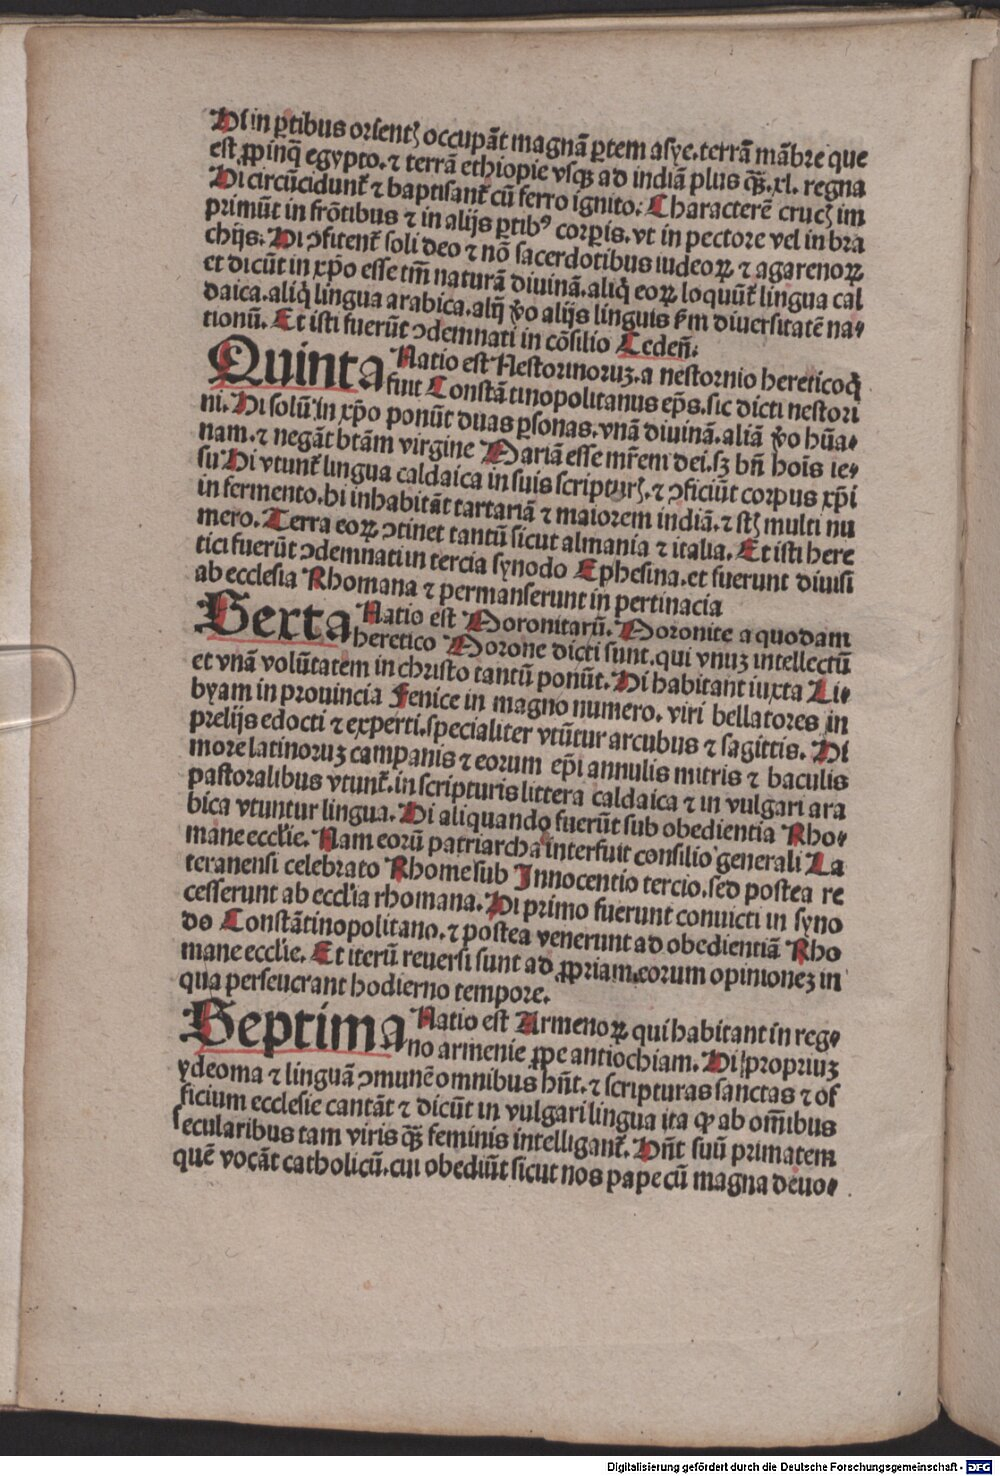 Hi in ꝑtibus orientꝫ occupāt magnā ꝑtem asye. terrā mābre que
est ꝓpinq̄ egypto. ⁊ terrā ethiopie vsqꝫ ad indiā plus q̄ꝫ. xl. regna
Hi circūcidunt᷑ ⁊ baptisant᷑ cū ferro ignito: Characterē crucꝫ im
primūt in frōtibus ⁊ in alijs ꝑtibꝰ corꝑis. vt in pectore vel in bra
chijs. Hi ↄfitent᷑ soli deo ⁊ nō sacerdotibus iudeoꝝ ⁊ agarenoꝝ
et dicūt in xp̄o esse tm̄ naturā diuinā. aliq̄ eoꝝ loquūt᷑ lingua cal
daica. aliq̄ lingua arabica. alij v̄o alijs linguis ẜm diuersitatē na⸗
tionū. Et isti fuerūt ↄdemnati in cōsilio Cedeñ.
Quinta Natio est Nestorinoruꝫ. a nestornio hereticoq̄
fuit Constātinopolitanus ep̄s. sic dicti nestori
ni. Hi solū in xp̄o ponūt duas ꝑsonas. vnā diuinā. aliā v̄o hūa⸗
nam. ⁊ negāt btām virgine Mariā esse mr̄em dei. sꝫ bn̄ hoīs ie⸗
su Hi vtunt᷑ lingua caldaica in suis scripturꝫ. ⁊ ↄficiūt corpus xp̄i
in fermento. hi inhabitāt tartariā ⁊ maiorem indiā. ⁊ stꝫ multi nu
mero. Terra eoꝝ ↄtinet tantū sicut almania ⁊ italia. Et isti here
tici fuerūt ↄdemnati in tercia synodo Ephesina. et fuerunt diuisi
ab ecclesia Rhomana ⁊ permanserunt in pertinacia
Sexta Natio est Moronitarū. Moronite a quodam
heretico Morone dicti sunt. qui vnuꝫ intellectū
et vnā volūtatem in christo tantū ponūt. Hi habitant iuxta Li⸗
byam in prouincia Fenice in magno numero. viri bellatores in
prelijs edocti ⁊ experti. specialiter vtūtur arcubus ⁊ sagittis. Hi
more latinoruꝫ campanis ⁊ eorum ep̄i annulis mitris ⁊ baculis
pastoralibus vtunt᷑. in scripturis littera caldaica ⁊ in vulgari ara
bica vtuntur lingua. Hi aliquando fuerūt sub obedientia Rho⸗
mane eccl̄ie. Nam eorū patriarcha interfuit consilio generali La
teranensi celebrato Rhome sub Innocentio tercio. sed postea re
cesserunt ab eccl̄ia rhomana. Hi primo fuerunt conuicti in syno
do Constātinopolitano. ⁊ postea venerunt ad obedientiā Rho
mane eccl̄ie. Et iterū reuersi sunt ad ꝓpriam eorum opinioneꝫ in
qua perseucrant hodierno tempore.
Septima Natio est Armenoꝝ qui habitant in reg⸗
no armenie ꝓpe antiochiam. Hi propriuꝫ
ydeoma ⁊ linguā ↄmunē omnibus hn̄t. ⁊ scripturas sanctas ⁊ of
ficium ecclesie cantāt ⁊ dicūt in vulgari lingua ita ꝙ ab om̄ibus
secularibus tam viris q̄ꝫ feminis intelligant᷑. Hn̄t suū primatem
quē vocāt catholicū. cui obediūt sicut nos pape cū magna deuo⸗
Digitalisierung gefördert durch die Deutsche Forschungsgemeinschaft - DFG